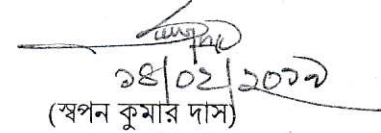 ১৪/০২/২০১৭
(স্বপন কুমার দাস)